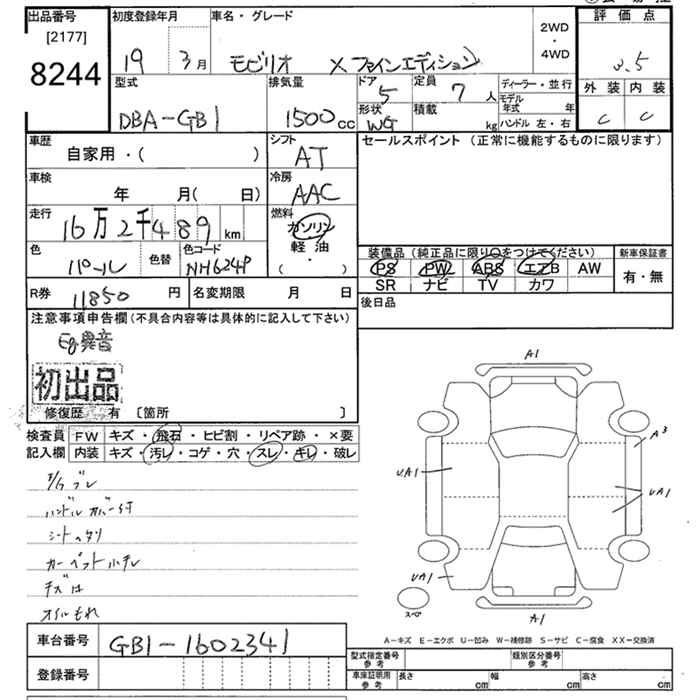 出品番号
[2177]
8244
初度登録年月
19 3月
車名・グレード
モビリオ Xファインエディション
2WD
・
4WD
評価点
3.5
外装 内装
C C
型式
DBA-GB1
排気量
1500cc
ドア
5
形状
WG
定員
7人
積載
kg
ディーラー・並行
モデル年式 年
ハンドル 左・右
車歴
自家用・( )
シフト
AT
セールスポイント (正常に機能するものに限ります)
車検
年 月( 日)
冷房
AAC
走行
16万2千489km
燃料
ガソリン
軽油
( ・ )
色
パール
色替
色コード
NH624P
装備品 (純正品に限り○をつけてください)
PS PW ABS エアB AW
SR ナビ TV カワ
新車保証書
有・無
R券 11850円
名変期限 月 日
後日品
注意事項申告欄 (不具合内容等は具体的に記入して下さい)
Eg異音
初出品
修復歴 有 〔箇所 〕
検査員
記入欄
FW キズ・飛石・ヒビ割・リペア跡・×要
内装 キズ・汚レ・コゲ・穴・スレ・キレ・破レ
ハンドルカバー付
シートヘタリ
オイルもれ
A1
A3
UA1
UA1
UA1
A1
スペア
A-キズ E-エクボ U-凹み W-補修跡 S-サビ C-腐食 XX-交換済
車台番号 GB1-1602341
登録番号
型式指定番号
参考
類別区分番号
参考
車庫証明用
参考
長さ cm 幅 cm 高さ cm